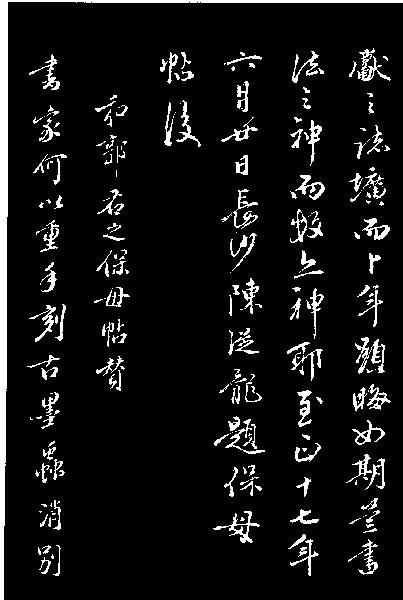 獻之誌壙而卜年顯晦如期豈書
法之神而數亦神耶至正十七年
六月廿日長沙陳從龍題保母
帖後
和郭右之保母帖贊
書家何以重手刻古墨消別